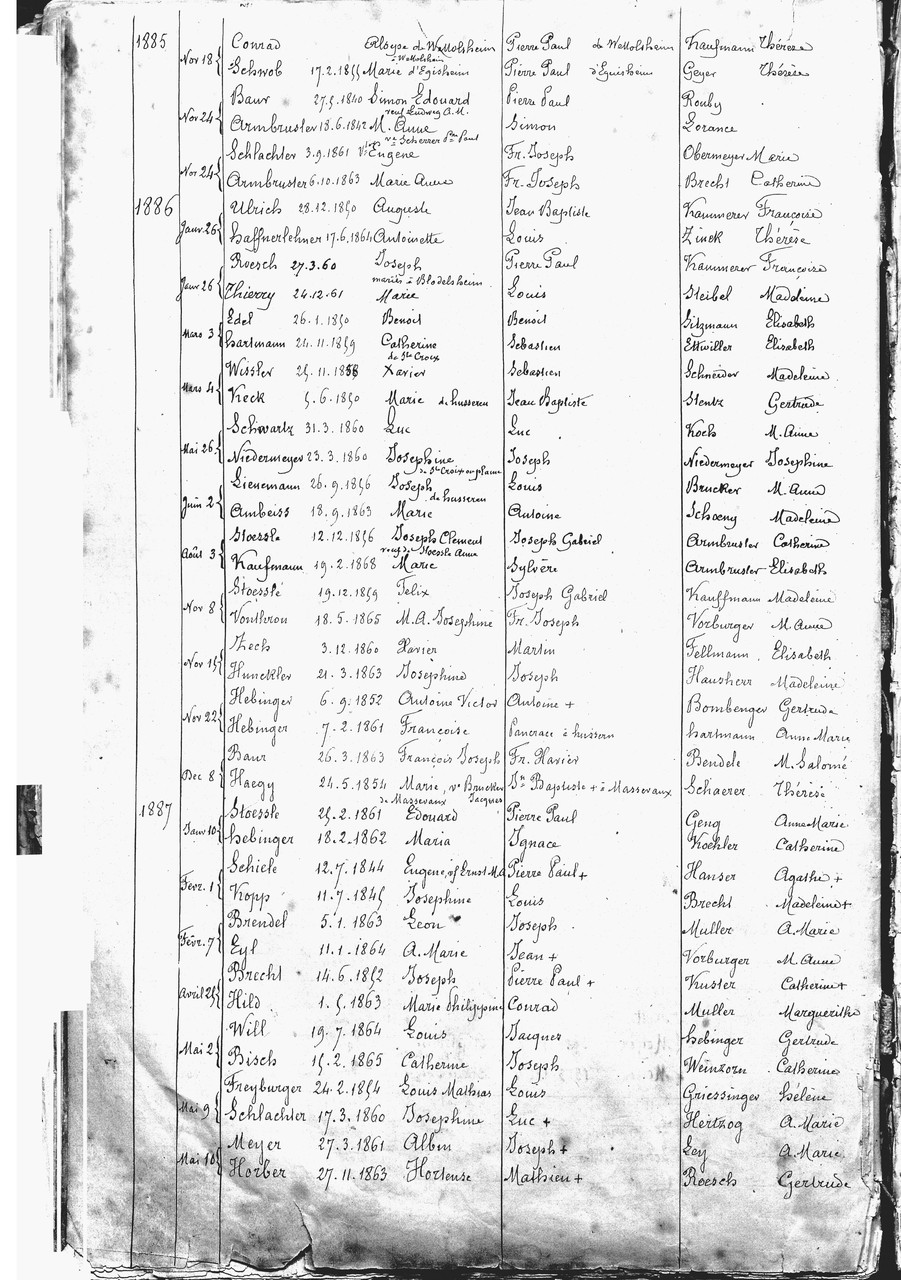 1885 Conrad Aloyse de Wettolsheim Pierre Paul de Wettolsheim Kaufmann Thérèse
Nov 18 à Wettolsheim
Schwob 17.2.1855 Marie d'Egisheim Pierre Paul d'Eguisheim Geyer Thérèse
Baur 27.5.1840 Simon Edouard Pierre Paul Rouby
Nov 24 veuf Ludwig A.M.
Armbruster 13.6.1842 M. Anne Simon Lorance
ve Scherrer Paul
Schlachter 3.9.1861 Eugène Fr. Joseph Obermeyer Marie
Nov 24
Armbruster 6.10.1863 Marie Anne Fr. Joseph Brecht Catherine
1886 Ulrich 28.12.1850 Auguste Jean Baptiste Kammerer Françoise
Janv. 26
Haffnerlehner 17.6.1864 Antoinette Louis Zinck Thérèse
Roesch 27.3.60 Joseph Pierre Paul Kammerer Françoise
Janv 26 mariés à Blodelsheim
Thierry 24.12.61 Marie Louis Steibel Madeleine
Edel 26.1.1850 Benoit Benoit Sitzmann Elisabeth
Mars 3
hartmann 24.11.1859 Catherine Sebastien Ettwiller Elisabeth
de Ste Croix
Wissler 25.11.1858 Xavier Sebastien Schneider Madeleine
Mars 4
Keck 5.6.1850 Marie de husseren Jean Baptiste Stentz Gertrude
Schwartz 31.3.1860 Luc Luc Koch M. Anne
Mai 26
Niedermeyer 23.3.1860 Josephine Joseph Niedermeyer Josephine
de Ste Croix en plaine
Lienemann 26.9.1856 Joseph Louis Brucker M. Anne
Juin 2 de husseren
Ambeiss 18.9.1863 Marie Antoine Schoeny Madeleine
Stoessle 12.12.1856 Joseph Clement Joseph Gabriel Armbruster Catherine
Août 3 veuf de Stoessle Anne
Kaufmann 19.2.1868 Marie Sylvère Armbruster Elisabeth
Stoesslé 19.12.1859 Felix Joseph Gabriel Kauffmann Madeleine
Nov 8
Vonthron 18.5.1865 M.A. Josephine Fr. Joseph Vorburger M. Anne
Zech 3.12.1860 Xavier Martin Fellmann Elisabeth
Nov 15
Hunckler 21.3.1863 Josephine Joseph Hausherr Madeleine
Hebinger 6.9.1852 Antoine Victor Antoine + Bombenger Gertrude
Nov 22
Hebinger 7.2.1861 Françoise Pancrace à hussern hartmann Anne Marie
Baur 26.3.1863 François Joseph Fr. Xavier Bendele M. Salomé
Dec 8
Haegy 24.5.1854 Marie, ve Brucker Jn Baptiste + à Massevaux Schaerer Thérèse
de Massevaux Jacques
1887 Stoessle 25.2.1861 Edouard Pierre Paul Geng Anne Marie
Janv 10
hebinger 18.2.1862 Maria Ignace Koehler Catherine
Schiele 12.7.1844 Eugène, vf Ernst M.A Pierre Paul + Hanser Agathe +
Fevr. 1
Kopp 11.7.1845 Josephine Louis Brecht Madeleine +
Brendel 5.1.1863 Leon Joseph Muller A. Marie
Févr. 7
Eyl 11.1.1864 A. Marie Jean + Vorburger M. Anne
Brecht 14.6.1852 Joseph Pierre Paul + Kuster Catherine +
Avril 25
Hild 1.5.1863 Marie Philippine Conrad Muller Margueritha
Will 19.7.1864 Louis Jacques hebinger Gertrude
Mai 2
Bisch 15.2.1865 Catherine Joseph Weinzorn Catherine
Freyburger 24.2.1854 Louis Mathias Louis Griessinger hélène
Mai 9
Schlachter 17.3.1860 Josephine Luc + Hertzog A. Marie
Meyer 27.3.1861 Albin Joseph + Ley A. Marie
Mai 10
Horber 27.11.1863 Hortense Mathieu + Roesch Gertrude